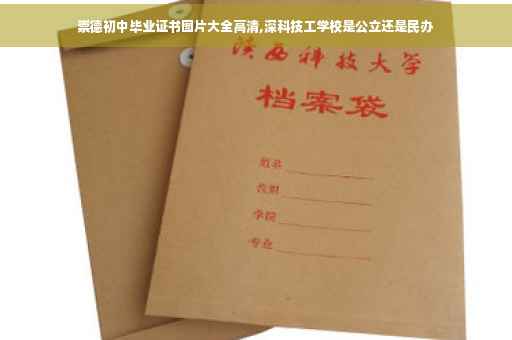 崇德初中毕业证书图片大全高清,深科技工学校是公立还是民办
陕西科技大学
档案袋
姓名
学院
专业